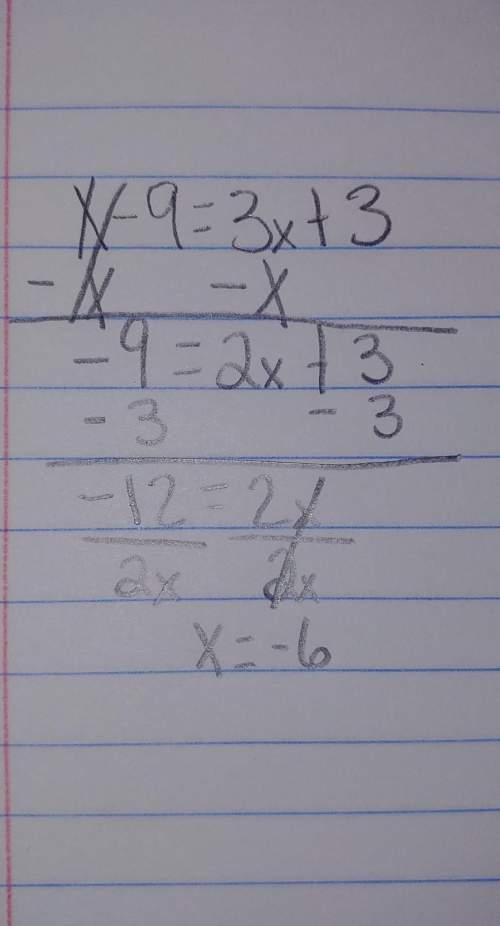 x - 9 = 3x + 3
- x - x
- 9 = 2x + 3
- 3 - 3
-12 = 2x
2x 2x
x = -6